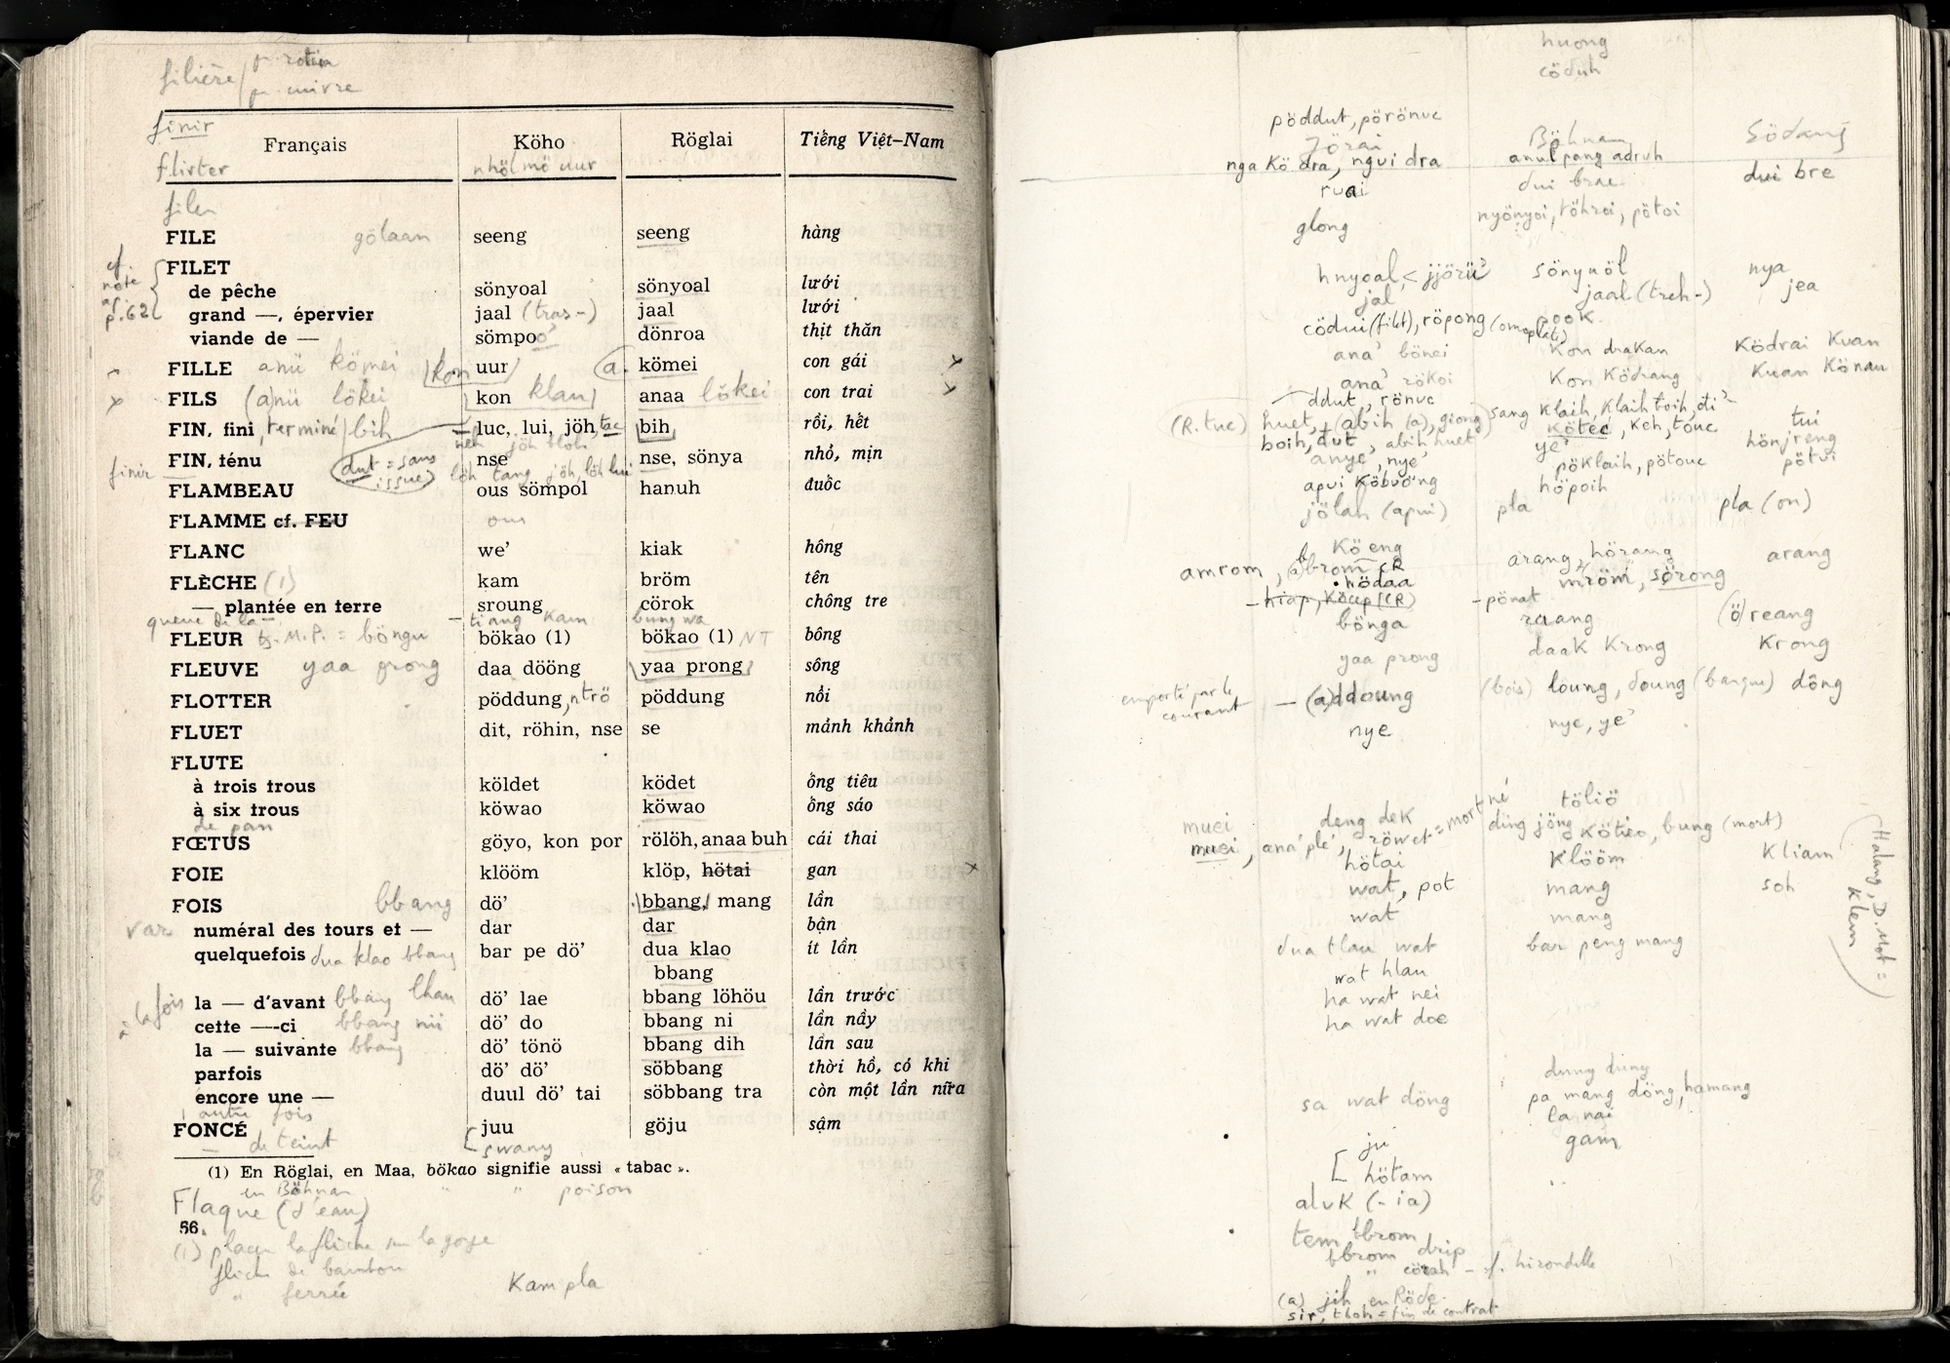 filière
finir
flirter nhöl mö uur
Français Köho Röglai Tiếng Việt–Nam
FILE gölaan seeng seeng hàng
cf. note p. 62
FILET
de pêche sönyoal sönyoal lưới
grand —, épervier jaal (tras-) jaal lưới
viande de — sömpoo dönroa thịt thăn
FILLE anü kömei kon uur (a) kömei con gái
FILS (a)nü lökei kon klau anaa lökei con trai
FIN, fini, terminé bih luc, lui, jöh, tac bih rồi, hết
neh jöh tloh
finir FIN, ténu dut = sans issue nse nse, sönya nhỏ, mịn
löh tang jöh, löh lui
FLAMBEAU ous sömpol hanuh đuốc
FLAMME cf. FEU ous
FLANC we’ kiak hông
FLÈCHE (1) kam bröm tên
— plantée en terre sroung cörok chông tre
queue de la — tiang kam bung wa
FLEUR M.P. = böngu bökao (1) bökao (1) NT bông
FLEUVE yaa prong daa dööng yaa prong sông
FLOTTER pöddung, ntrö pöddung nổi
FLUET dit, röhin, nse se mảnh khảnh
FLUTE
à trois trous köldet ködet ống tiêu
à six trous köwao köwao ống sáo
de pan
FŒTUS göyo, kon por rölöh, anaa buh cái thai
FOIE klööm klöp, hötai gan
FOIS bbang dö’ bbang, mang lần
var numéral des tours et — dar dar bận
quelquefois dua klao bbang bar pe dö’ dua klao ít lần
bbang
à la fois la — d’avant bbang lhau dö’ lae bbang löhöu lần trước
cette —-ci bbang nii dö’ do bbang ni lần nầy
la — suivante bbang dö’ tönö bbang dih lần sau
parfois dö’ dö’ söbbang thời hồ, có khi
encore une — duul dö’ tai söbbang tra còn một lần nữa
autre fois
FONCÉ juu göju sậm
— de teint swany
(1) En Röglai, en Maa, bökao signifie aussi « tabac ».
en Böhnar " " poison
Flaque (d'eau)
56.
(1) placer la flèche sur la gorge
flèche de bambou
" ferrée Kam pla
huong
cöduh
pöddut, pörönuc
Jörai Böhnam Södang
nga Kö dra, ngui dra anul pang adruh
ruai dui brae dui bre
glong nyönyoi, töhroi, pötoi
hnyoal < jjörü sönyuöl nya
jal jaal (treh-) jea
cödui (filet), röpong (omoplate) pook
ana' bönei Kon draKan Ködrai Kuan
ana' rökoi Kon Ködrang Kuan Könau
ddut, rönuc
(R. tuc) huet, (abih (a), giong sang klaih, Klaih toih, di' tui
boih, dut, abih huet Kötec, Keh, touc hönjreng
anye', nye' ye' pöklaih, pötouc pötui
apui Köbuông höpoih
jölah (apui) pla pla (on)
Kö eng arang, hörang arang
amrom, (a)brom CR mröm, sörong
hödaa
— hiap, Köcup (CR) - pönat
bönga rang (ö)reang
yaa prong daak Krong Krong
emporté par le courant — (a)ddoung (bois) loung, doung (barque) dông
nye nye, ye'
töliö
muei deng dek ding jöng Kötieo, bung (mort)
muei, ana' plé', röwet = mort né
hötai Klööm Kliam
(Halang, D. Mot = Klem)
wat, pot mang soh
wat mang
dua tlau wat bar peng mang
wat hlau
ha wat nei
ha wat doe
dung dung
sa wat döng pa mang döng, hamang
la nai
ju gam
hötam
aluK (- ia)
tem bbrom
bbrom drip
" cörah - f. hirondelle
(a) jih en Röde.
sir, tboh = fin de contrat